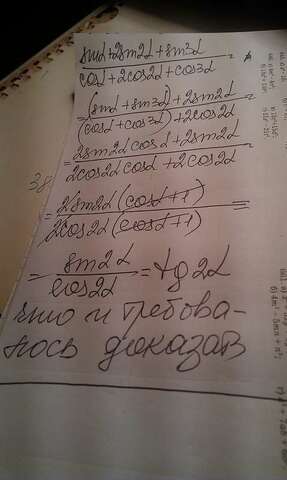 sinα+2sin2α+sin3α / cosα+2cos2α+cos3α =
= (sinα+sin3α)+2sin2α / (cosα+cos3α)+2cos2α =
= 2sin2α cosα+2sin2α / 2cos2α cosα+2cos2α
38
= 2sin2α (cosα+1) / 2cos2α (cosα+1) =
= sin2α / cos2α = tg 2α
что и требова-
лось доказать